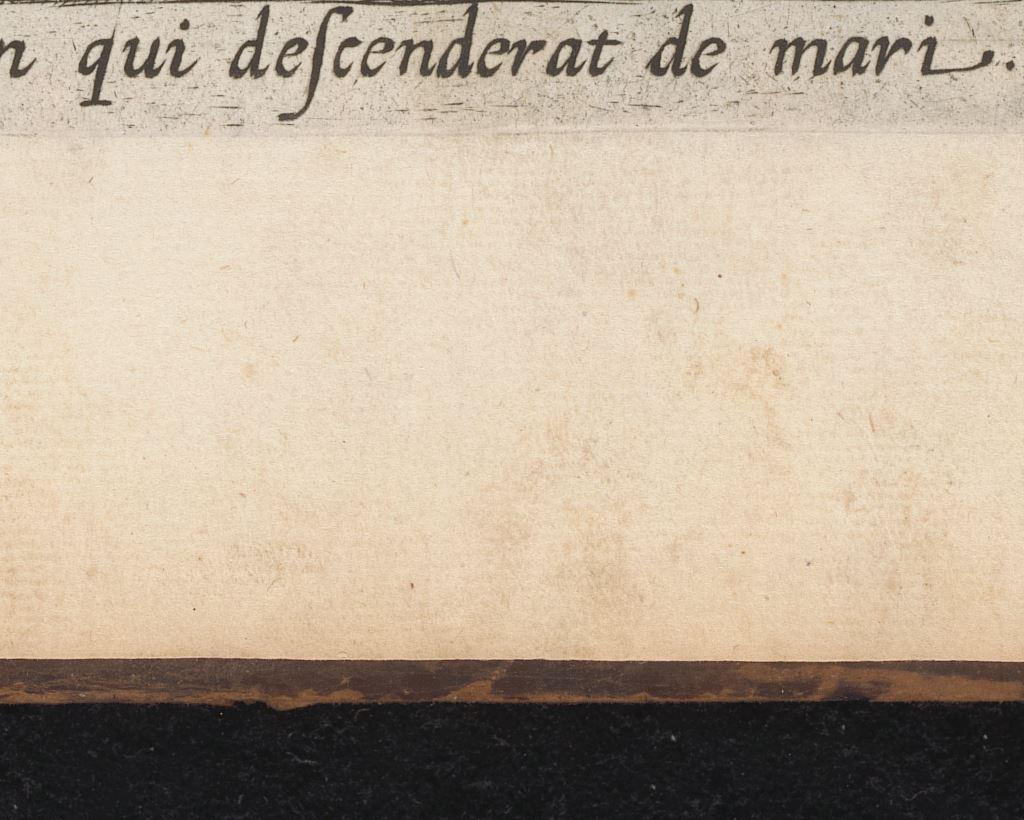 n qui deſcenderat de mari.